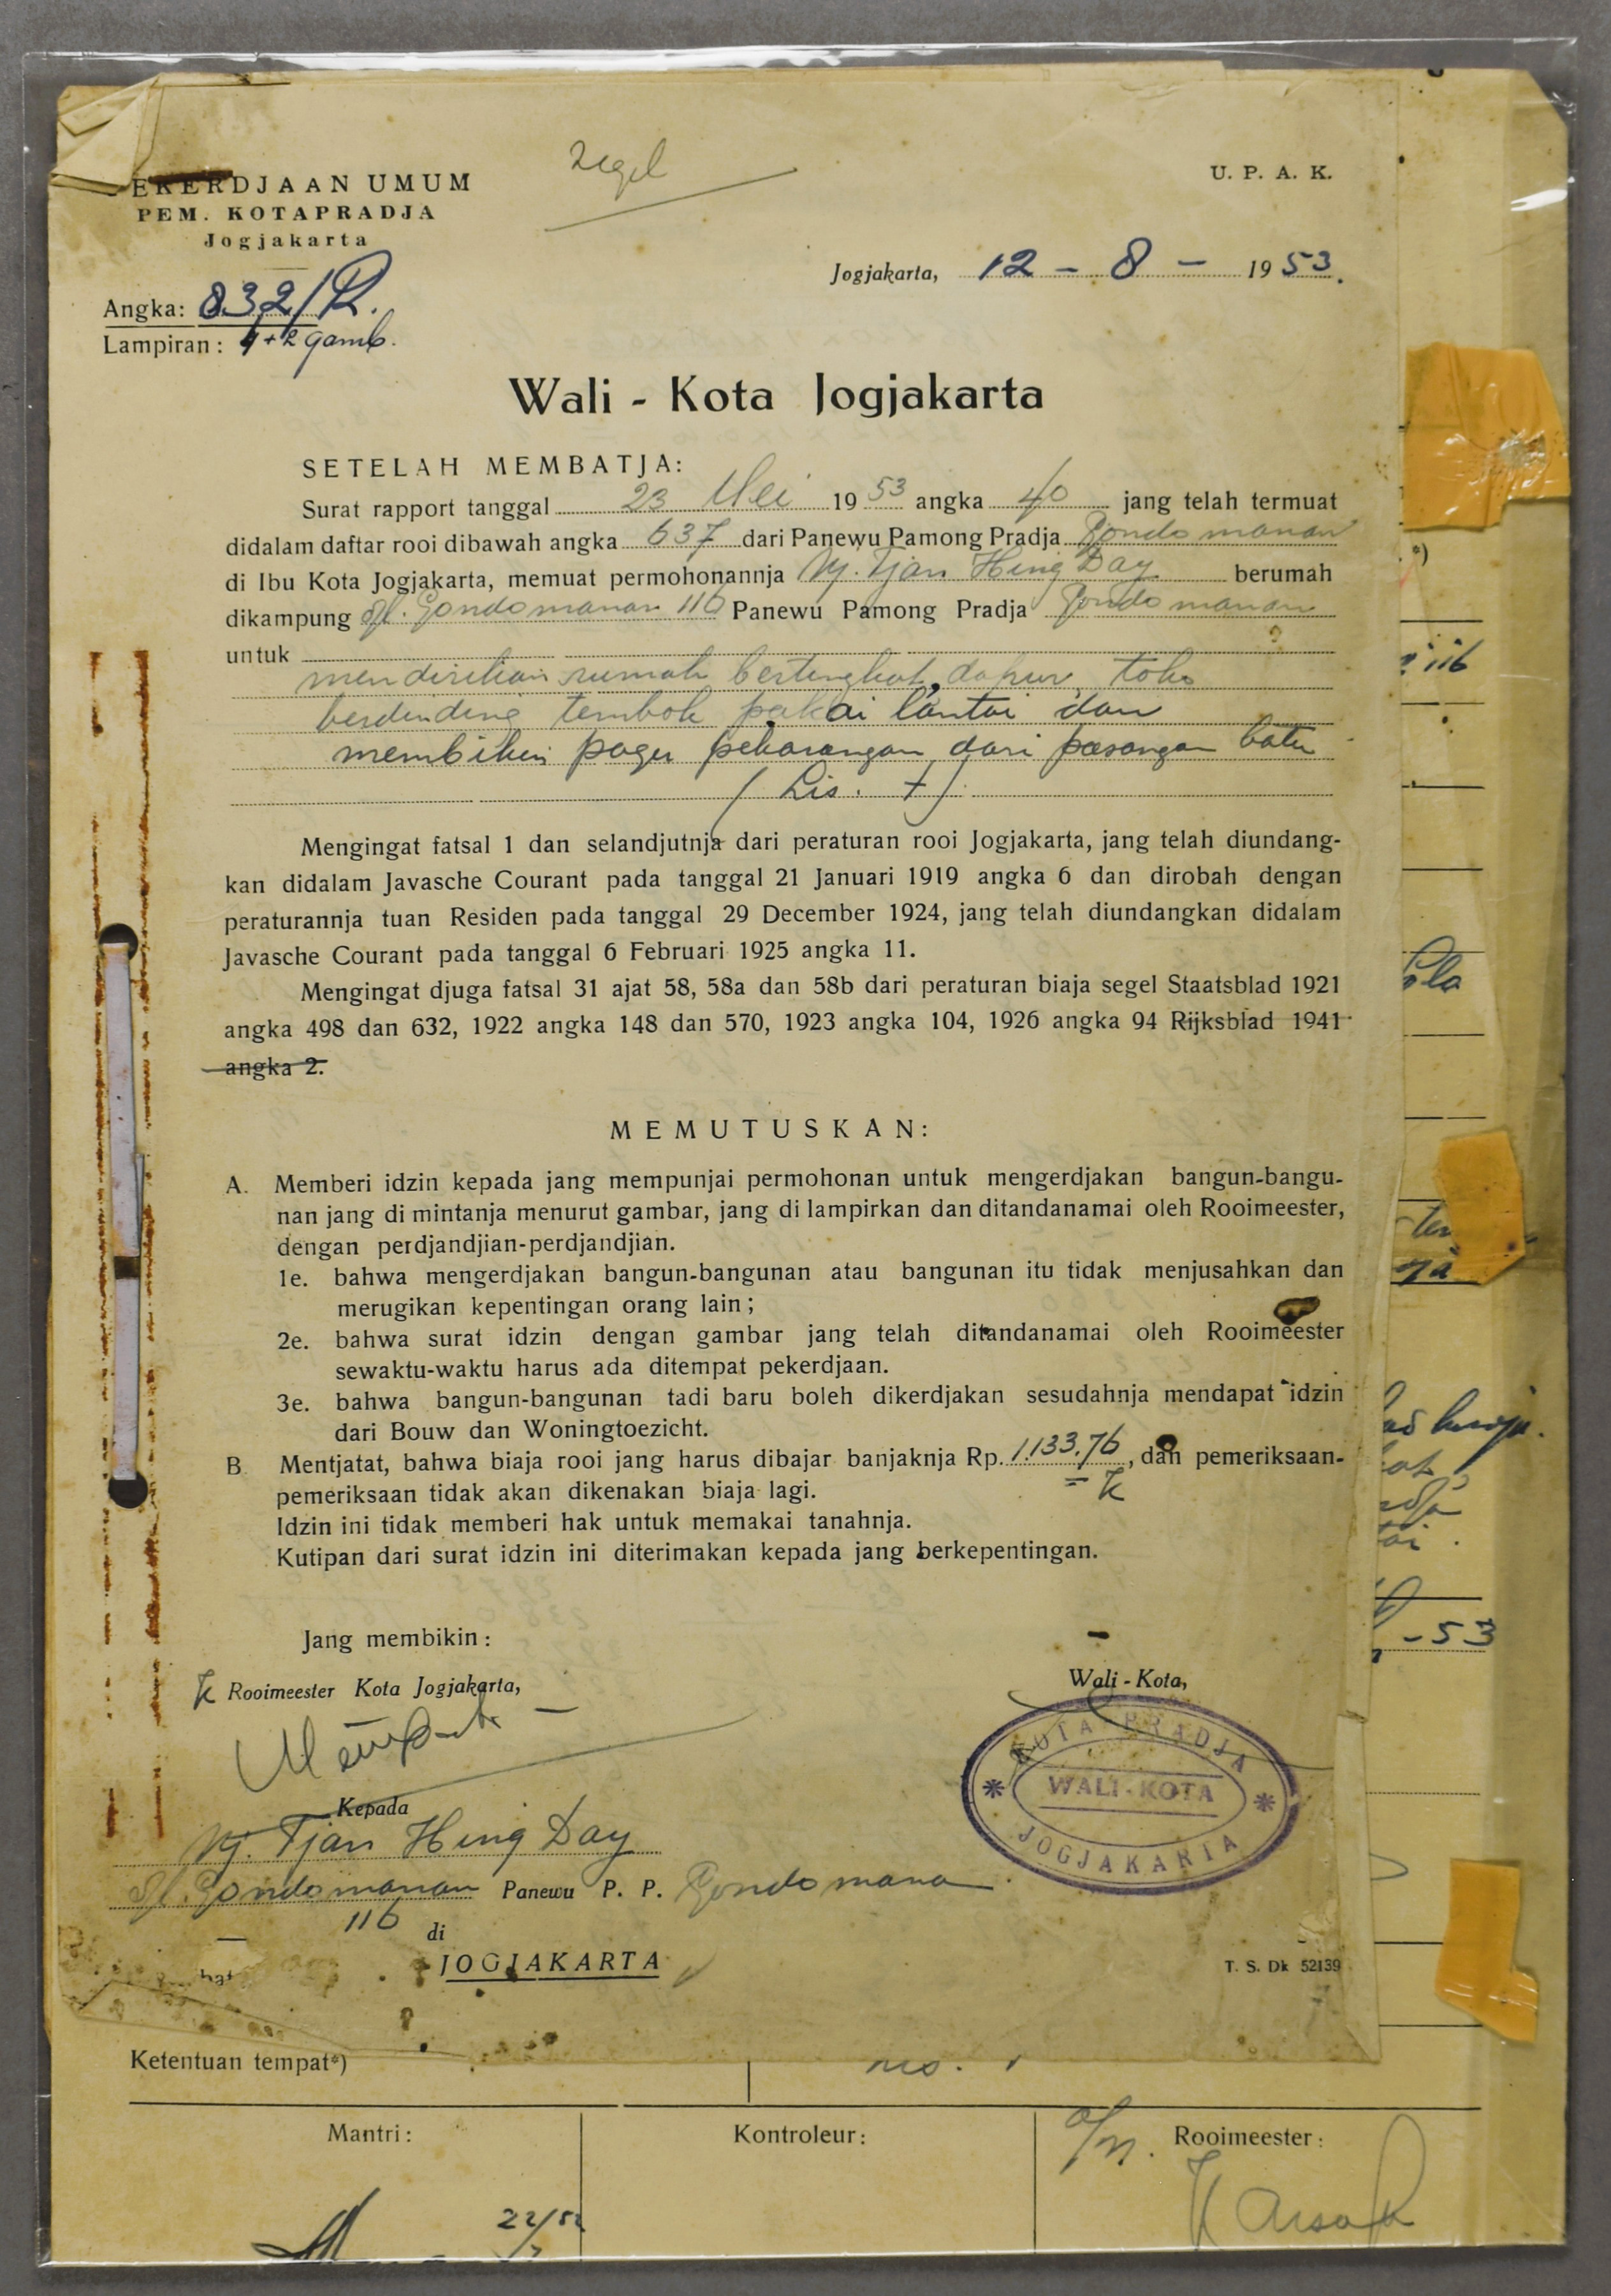 Zegel
U. P. A. K.
EKERDJAAN UMUM
PEM. KOTAPRADJA
Jogjakarta
Jogjakarta, 12 - 8 - 1953.
Angka: 832/R.
Lampiran: 4+2 gamb.
Wali - Kota Jogjakarta
SETELAH MEMBATJA:
Surat rapport tanggal 23 Mei 1953 angka 40 jang telah termuat
didalam daftar rooi dibawah angka 637 dari Panewu Pamong Pradja Gondomanan
di Ibu Kota Jogjakarta, memuat permohonannja Nj. Tjan Hing Day berumah
dikampung Djl. Gondomanan 116 Panewu Pamong Pradja Gondomanan
untuk
mendirikan rumah bertingkat, dapur, toko
berdinding tembok pakai lantai dan
membikin pager pekarangan dari pasangan batu
( Lis. t )
Mengingat fatsal 1 dan selandjutnja dari peraturan rooi Jogjakarta, jang telah diundang-
kan didalam Javasche Courant pada tanggal 21 Januari 1919 angka 6 dan dirobah dengan
peraturannja tuan Residen pada tanggal 29 December 1924, jang telah diundangkan didalam
Javasche Courant pada tanggal 6 Februari 1925 angka 11.
Mengingat djuga fatsal 31 ajat 58, 58a dan 58b dari peraturan biaja segel Staatsblad 1921
angka 498 dan 632, 1922 angka 148 dan 570, 1923 angka 104, 1926 angka 94 Rijksblad 1941
angka 2.
MEMUTUSKAN:
A. Memberi idzin kepada jang mempunjai permohonan untuk mengerdjakan bangun-bangu-
nan jang di mintanja menurut gambar, jang di lampirkan dan ditandanamai oleh Rooimeester,
dengan perdjandjian-perdjandjian.
1e. bahwa mengerdjakan bangun-bangunan atau bangunan itu tidak menjusahkan dan
merugikan kepentingan orang lain;
2e. bahwa surat idzin dengan gambar jang telah ditandanamai oleh Rooimeester
sewaktu-waktu harus ada ditempat pekerdjaan.
3e. bahwa bangun-bangunan tadi baru boleh dikerdjakan sesudahnja mendapat idzin
dari Bouw dan Woningtoezicht.
B. Mentjatat, bahwa biaja rooi jang harus dibajar banjaknja Rp. 1.133,76, dan pemeriksaan-
pemeriksaan tidak akan dikenakan biaja lagi.
Idzin ini tidak memberi hak untuk memakai tanahnja.
Kutipan dari surat idzin ini diterimakan kepada jang berkepentingan.
Jang membikin:
Rooimeester Kota Jogjakarta,
Wali - Kota,
KOTA PRADJA
WALI-KOTA
JOGJAKARTA
Kepada
Nj. Tjan Hing Day
Djl. Gondomanan Panewu P. P. Gondomanan
116
di
JOGJAKARTA
T. S. Dk 52139
Ketentuan tempat*)
Mantri:
Kontroleur:
Rooimeester: